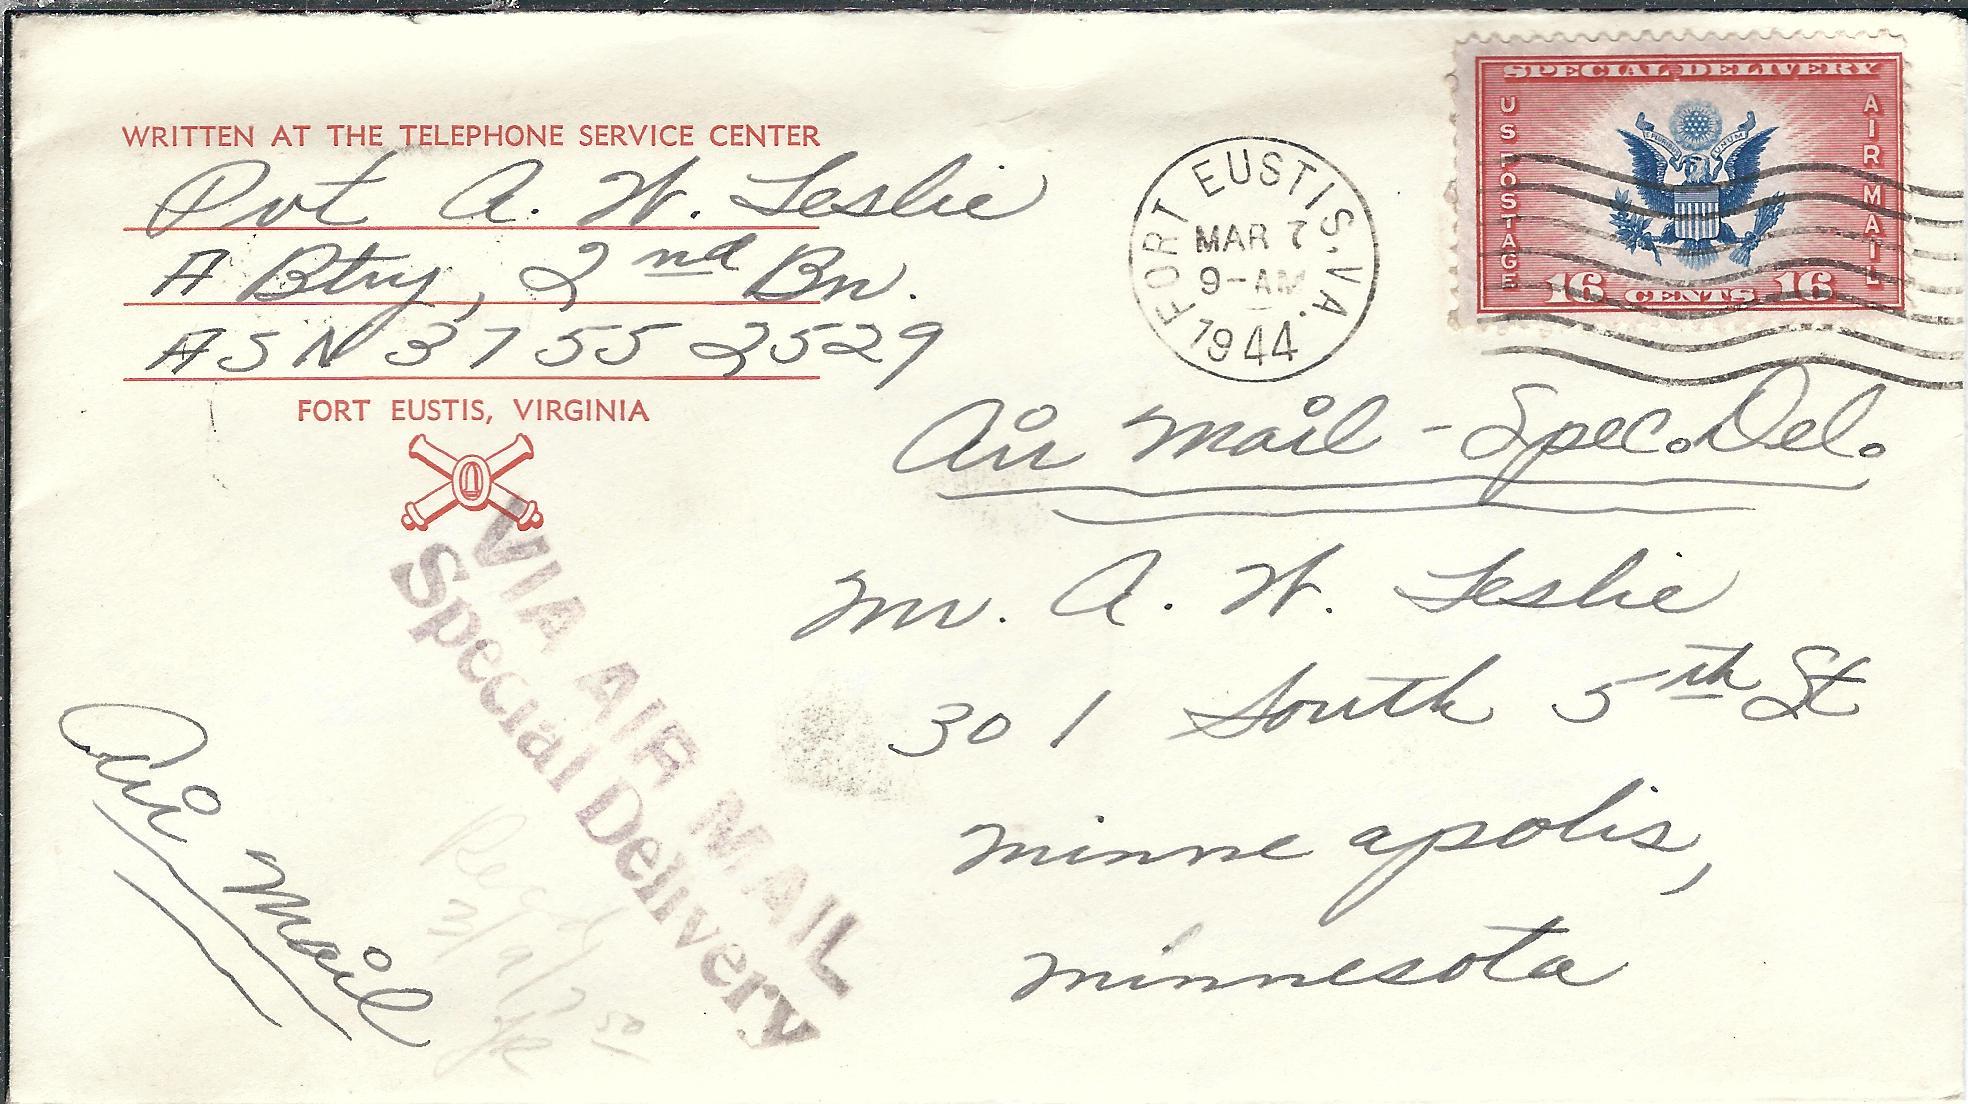 WRITTEN AT THE TELEPHONE SERVICE CENTER
Pvt A. W. Leslie
A Btry, 2nd Bn.
ASN 37552529
FORT EUSTIS, VIRGINIA
FORT EUSTIS, VA.
MAR 7
9-AM
1944
SPECIAL DELIVERY
US POSTAGE
AIR MAIL
E PLURIBUS UNUM
16 CENTS 16
Air Mail - Spec. Del.
Mr. A. W. Leslie
301 South 5th St
Minneapolis,
Minnesota
VIA AIR MAIL
Special Delivery
Air Mail
Recd
3/9/